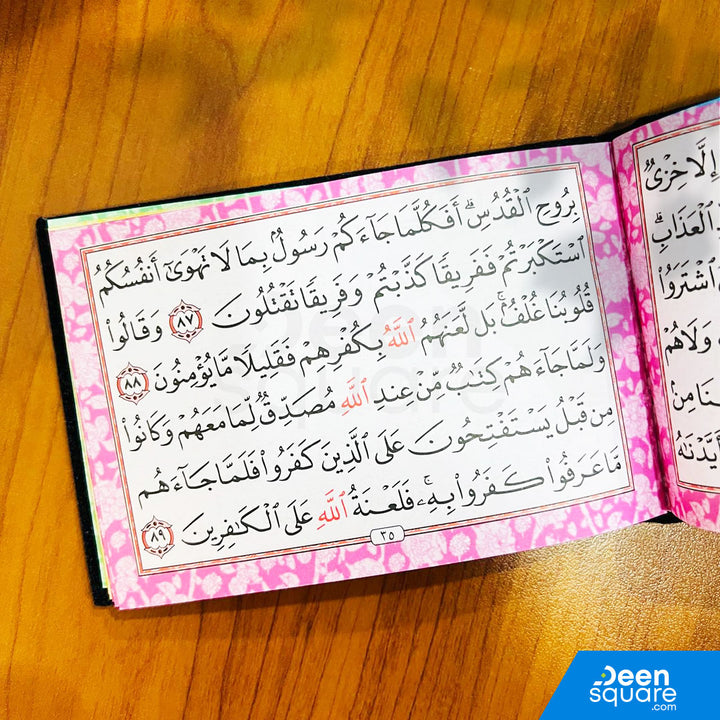 بِرُوحِ ٱلْقُدُسِ ۗ أَفَكُلَّمَا جَآءَكُمْ رَسُولٌۢ بِمَا لَا تَهْوَىٰٓ أَنفُسُكُمُ
ٱسْتَكْبَرْتُمْ فَفَرِيقًا كَذَّبْتُمْ وَفَرِيقًا تَقْتُلُونَ ٨٧ وَقَالُوا۟
قُلُوبُنَا غُلْفٌۢ ۚ بَل لَّعَنَهُمُ ٱللَّهُ بِكُفْرِهِمْ فَقَلِيلًا مَّا يُؤْمِنُونَ ٨٨
وَلَمَّا جَآءَهُمْ كِتَٰبٌ مِّنْ عِندِ ٱللَّهِ مُصَدِّقٌ لِّمَا مَعَهُمْ وَكَانُوا۟
مِن قَبْلُ يَسْتَفْتِحُونَ عَلَى ٱلَّذِينَ كَفَرُوا۟ فَلَمَّا جَآءَهُم
مَّا عَرَفُوا۟ كَفَرُوا۟ بِهِۦ ۚ فَلَعْنَةُ ٱللَّهِ عَلَى ٱلْكَٰفِرِينَ ٨٩
٣٥
إِلَّا خِزْىٌ
ٱلْعَذَابِ ۗ
ٱشْتَرَوُا۟
وَلَا هُمْ
مِنۢ
Deen
square
Deen
square
.com